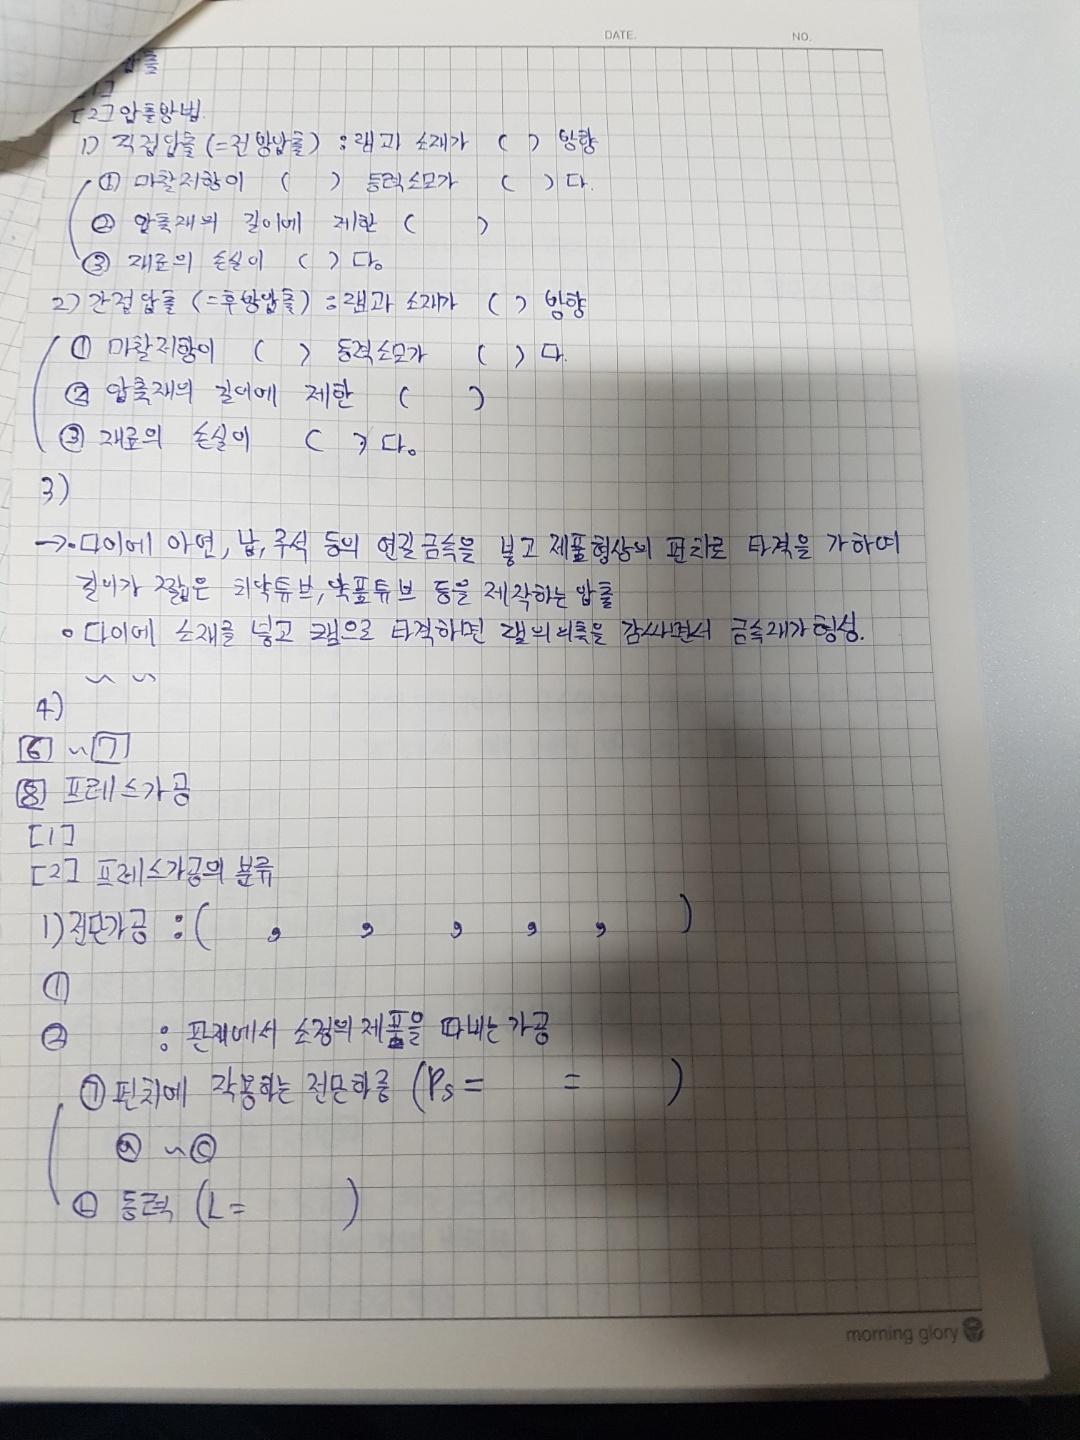 DATE. NO.
압출
[1]
[2] 압출방법.
1) 직접압출 (=전방압출) : 램과 소재가 ( ) 방향
① 마찰저항이 ( ) 동력소모가 ( ) 다.
② 압출재의 길이에 제한 ( )
③ 재료의 손실이 ( ) 다.
2) 간접압출 (=후방압출) : 램과 소재가 ( ) 방향
① 마찰저항이 ( ) 동력소모가 ( ) 다.
② 압출재의 길이에 제한 ( )
③ 재료의 손실이 ( ) 다.
3)
→ • 다이에 아연, 납, 주석 등의 연질금속을 넣고 제품형상의 펀치로 타격을 가하여
길이가 짧은 치약튜브, 약품튜브 등을 제작하는 압출
• 다이에 소재를 넣고 램으로 타격하면 램의 외측을 감싸면서 금속재가 형성.
~ ~
4)
[6] ~ [7]
[8] 프레스가공
[1]
[2] 프레스가공의 분류
1) 전단가공 : ( , , , , , )
①
② : 판재에서 소정의 제품을 따내는 가공
㉠ 펀치에 작용하는 전단하중 (Ps = = )
ⓐ ~ ⓒ
㉡ 동력 (L = )
morning glory